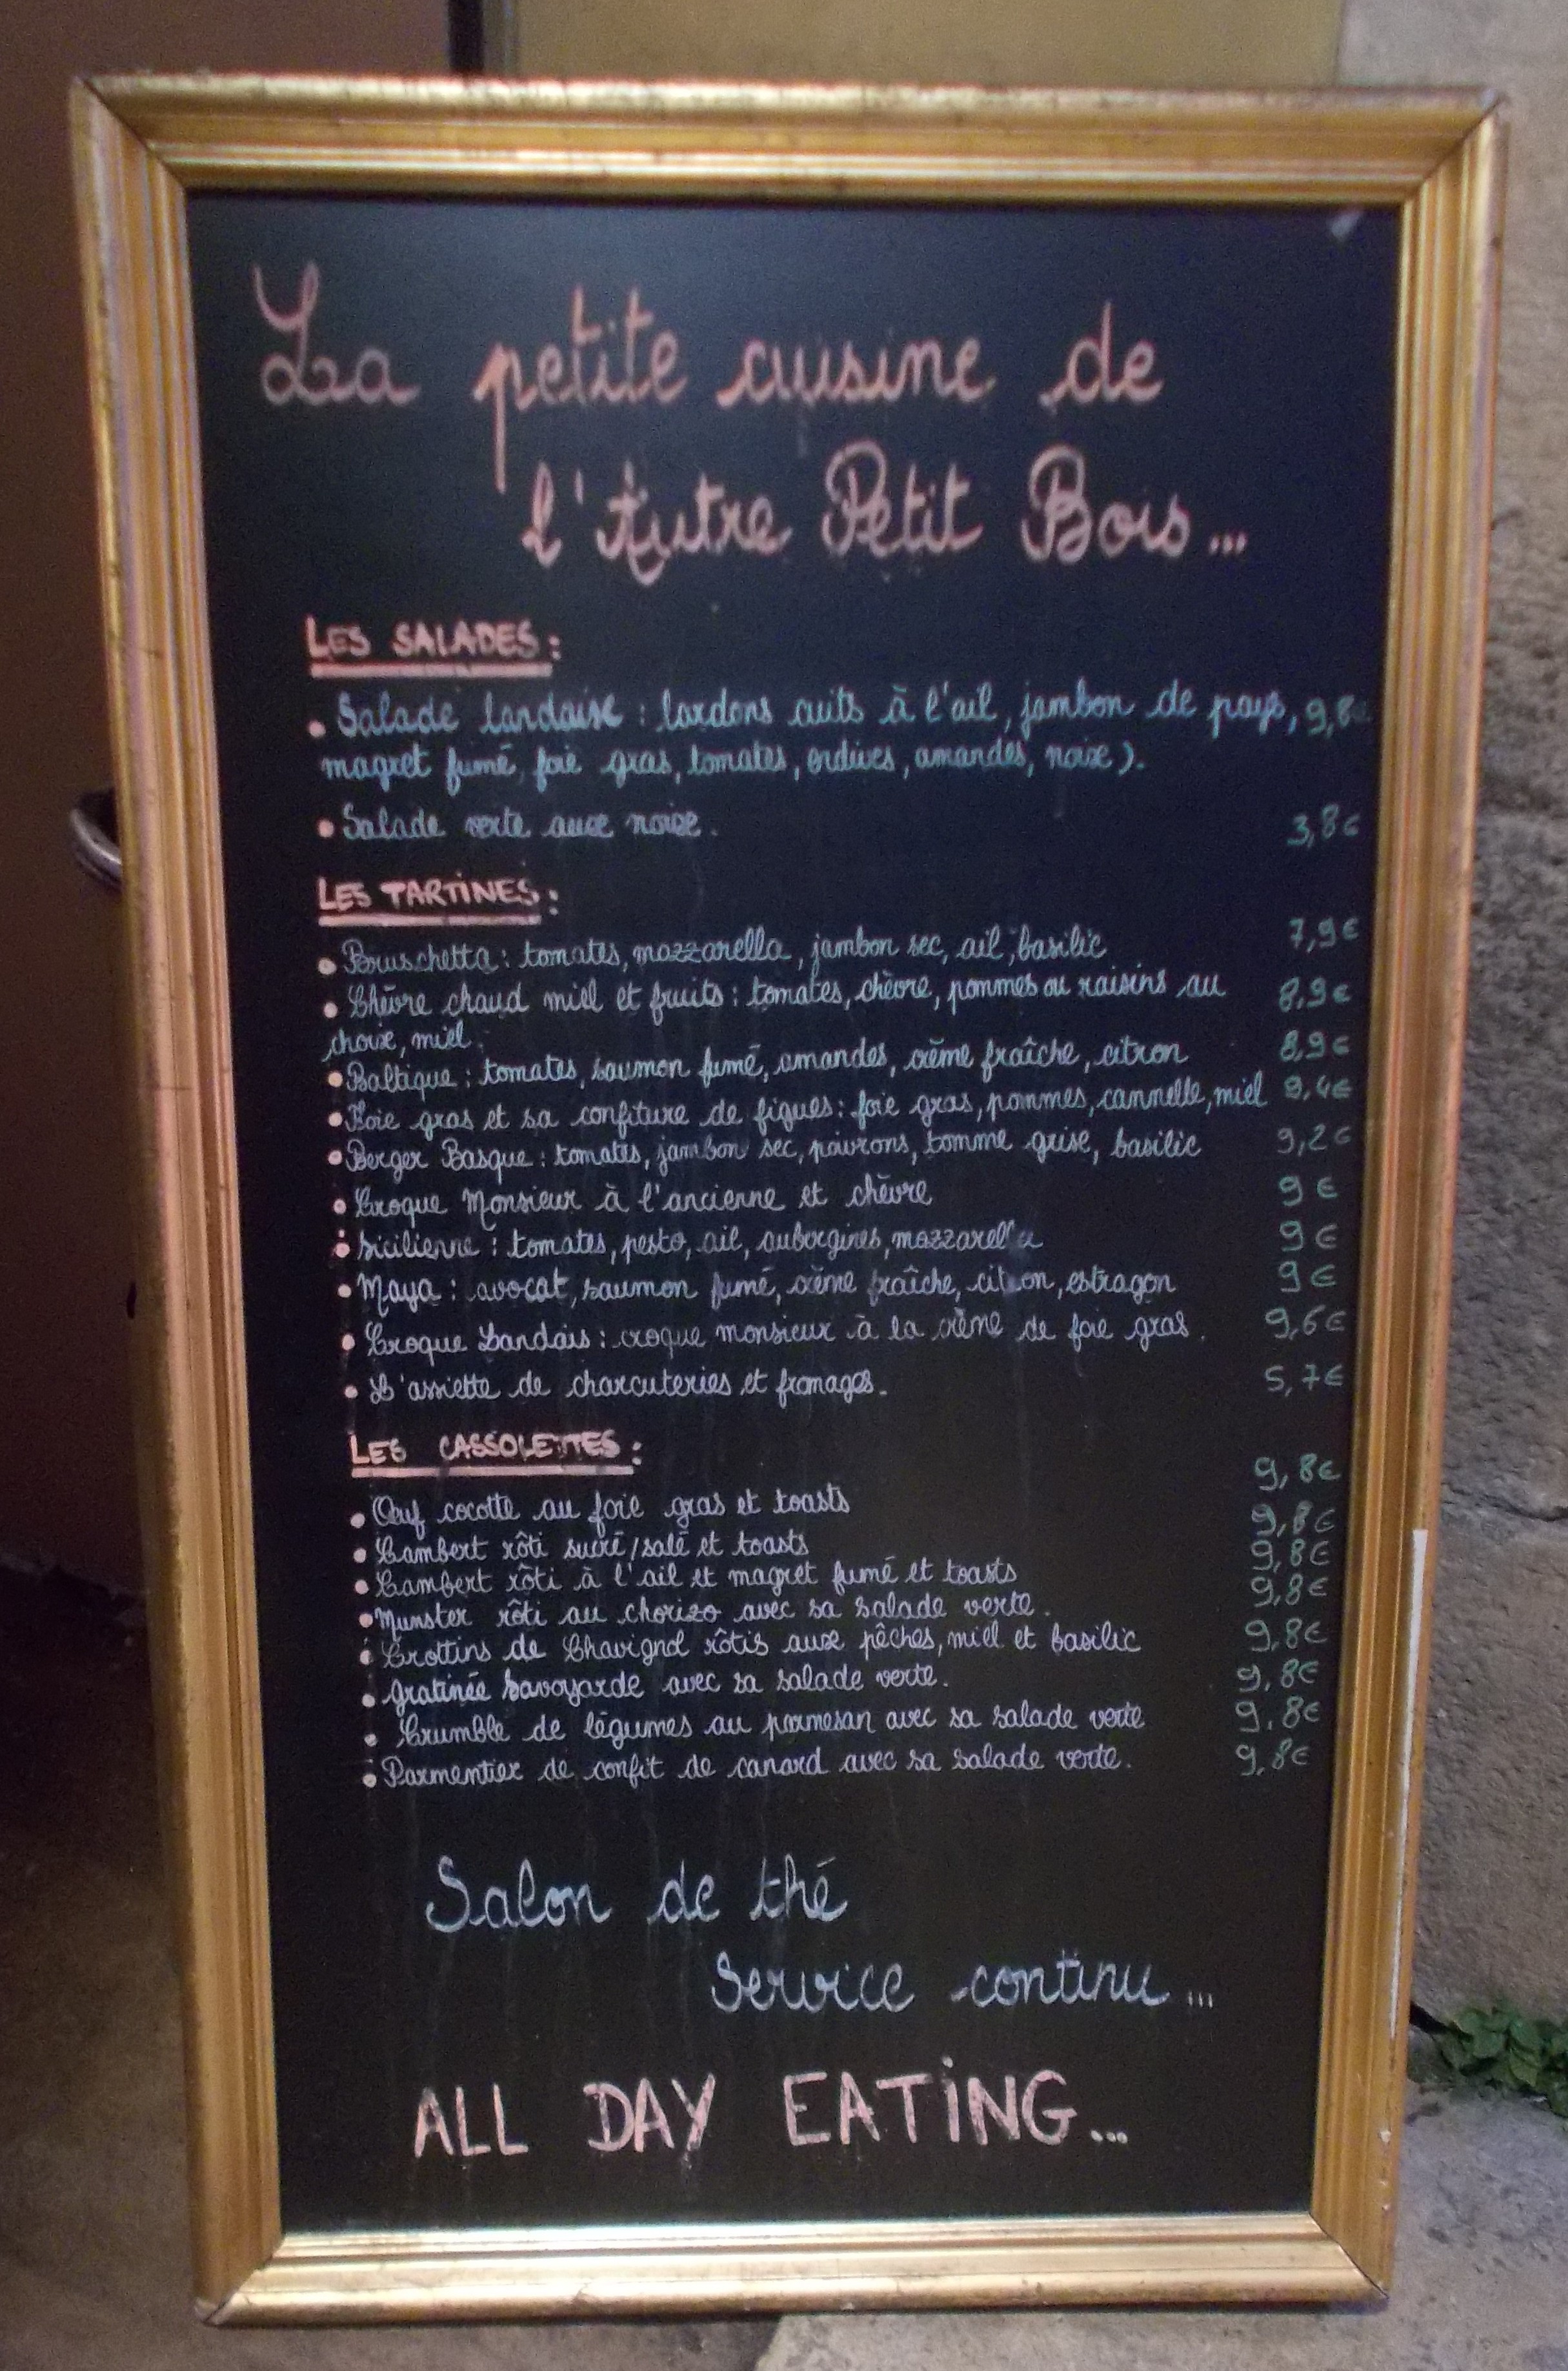 La petite cuisine de
l'Autre Petit Bois...
LES SALADES :
• Salade landaise : lardons cuits à l'ail, jambon de pays, 9,8€
magret fumé, foie gras, tomates, endives, amandes, noix).
• Salade verte aux noix. 3,8€
LES TARTINES :
• Bruschetta : tomates, mozzarella, jambon sec, ail, basilic 7,9€
• Chèvre chaud miel et fruits : tomates, chèvre, pommes ou raisins au 8,9€
choix, miel.
• Baltique : tomates, saumon fumé, amandes, crème fraîche, citron 8,9€
• Foie gras et sa confiture de figues : foie gras, pommes, cannelle, miel 9,4€
• Berger Basque : tomates, jambon sec, poivrons, tomme grise, basilic 9,2€
• Croque Monsieur à l'ancienne et chèvre 9€
• Sicilienne : tomates, pesto, ail, aubergines, mozzarella 9€
• Maya : avocat, saumon fumé, crème fraîche, citron, estragon 9€
• Croque Landais : croque monsieur à la crème de foie gras. 9,6€
• L'assiette de charcuteries et fromages. 5,7€
LES CASSOLETTES :
• Œuf cocotte au foie gras et toasts 9,8€
• Cambert rôti sucré/salé et toasts 9,8€
• Cambert rôti à l'ail et magret fumé et toasts 9,8€
• Munster rôti au chorizo avec sa salade verte. 9,8€
• Crottins de Chavignol rôtis aux pêches, miel et basilic 9,8€
• Gratinée Savoyarde avec sa salade verte. 9,8€
• Crumble de légumes au parmesan avec sa salade verte 9,8€
• Parmentier de confit de canard avec sa salade verte. 9,8€
Salon de thé
Service continu...
ALL DAY EATING...